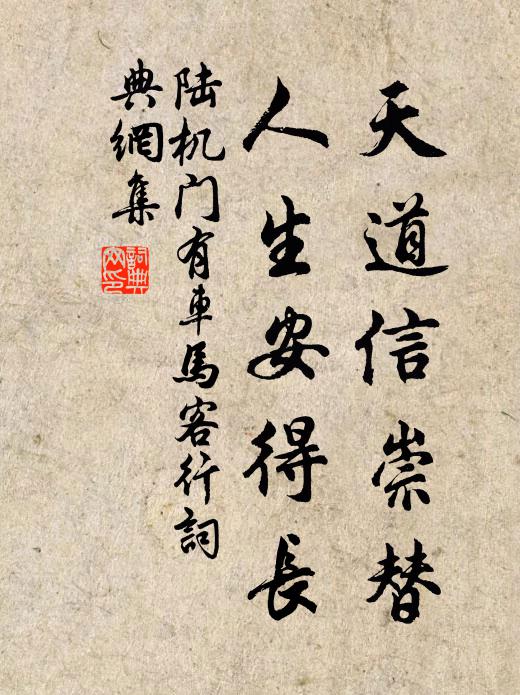 天道信崇替
人生安得長
陆机门有車馬客行詞
典網集
詞典
网印